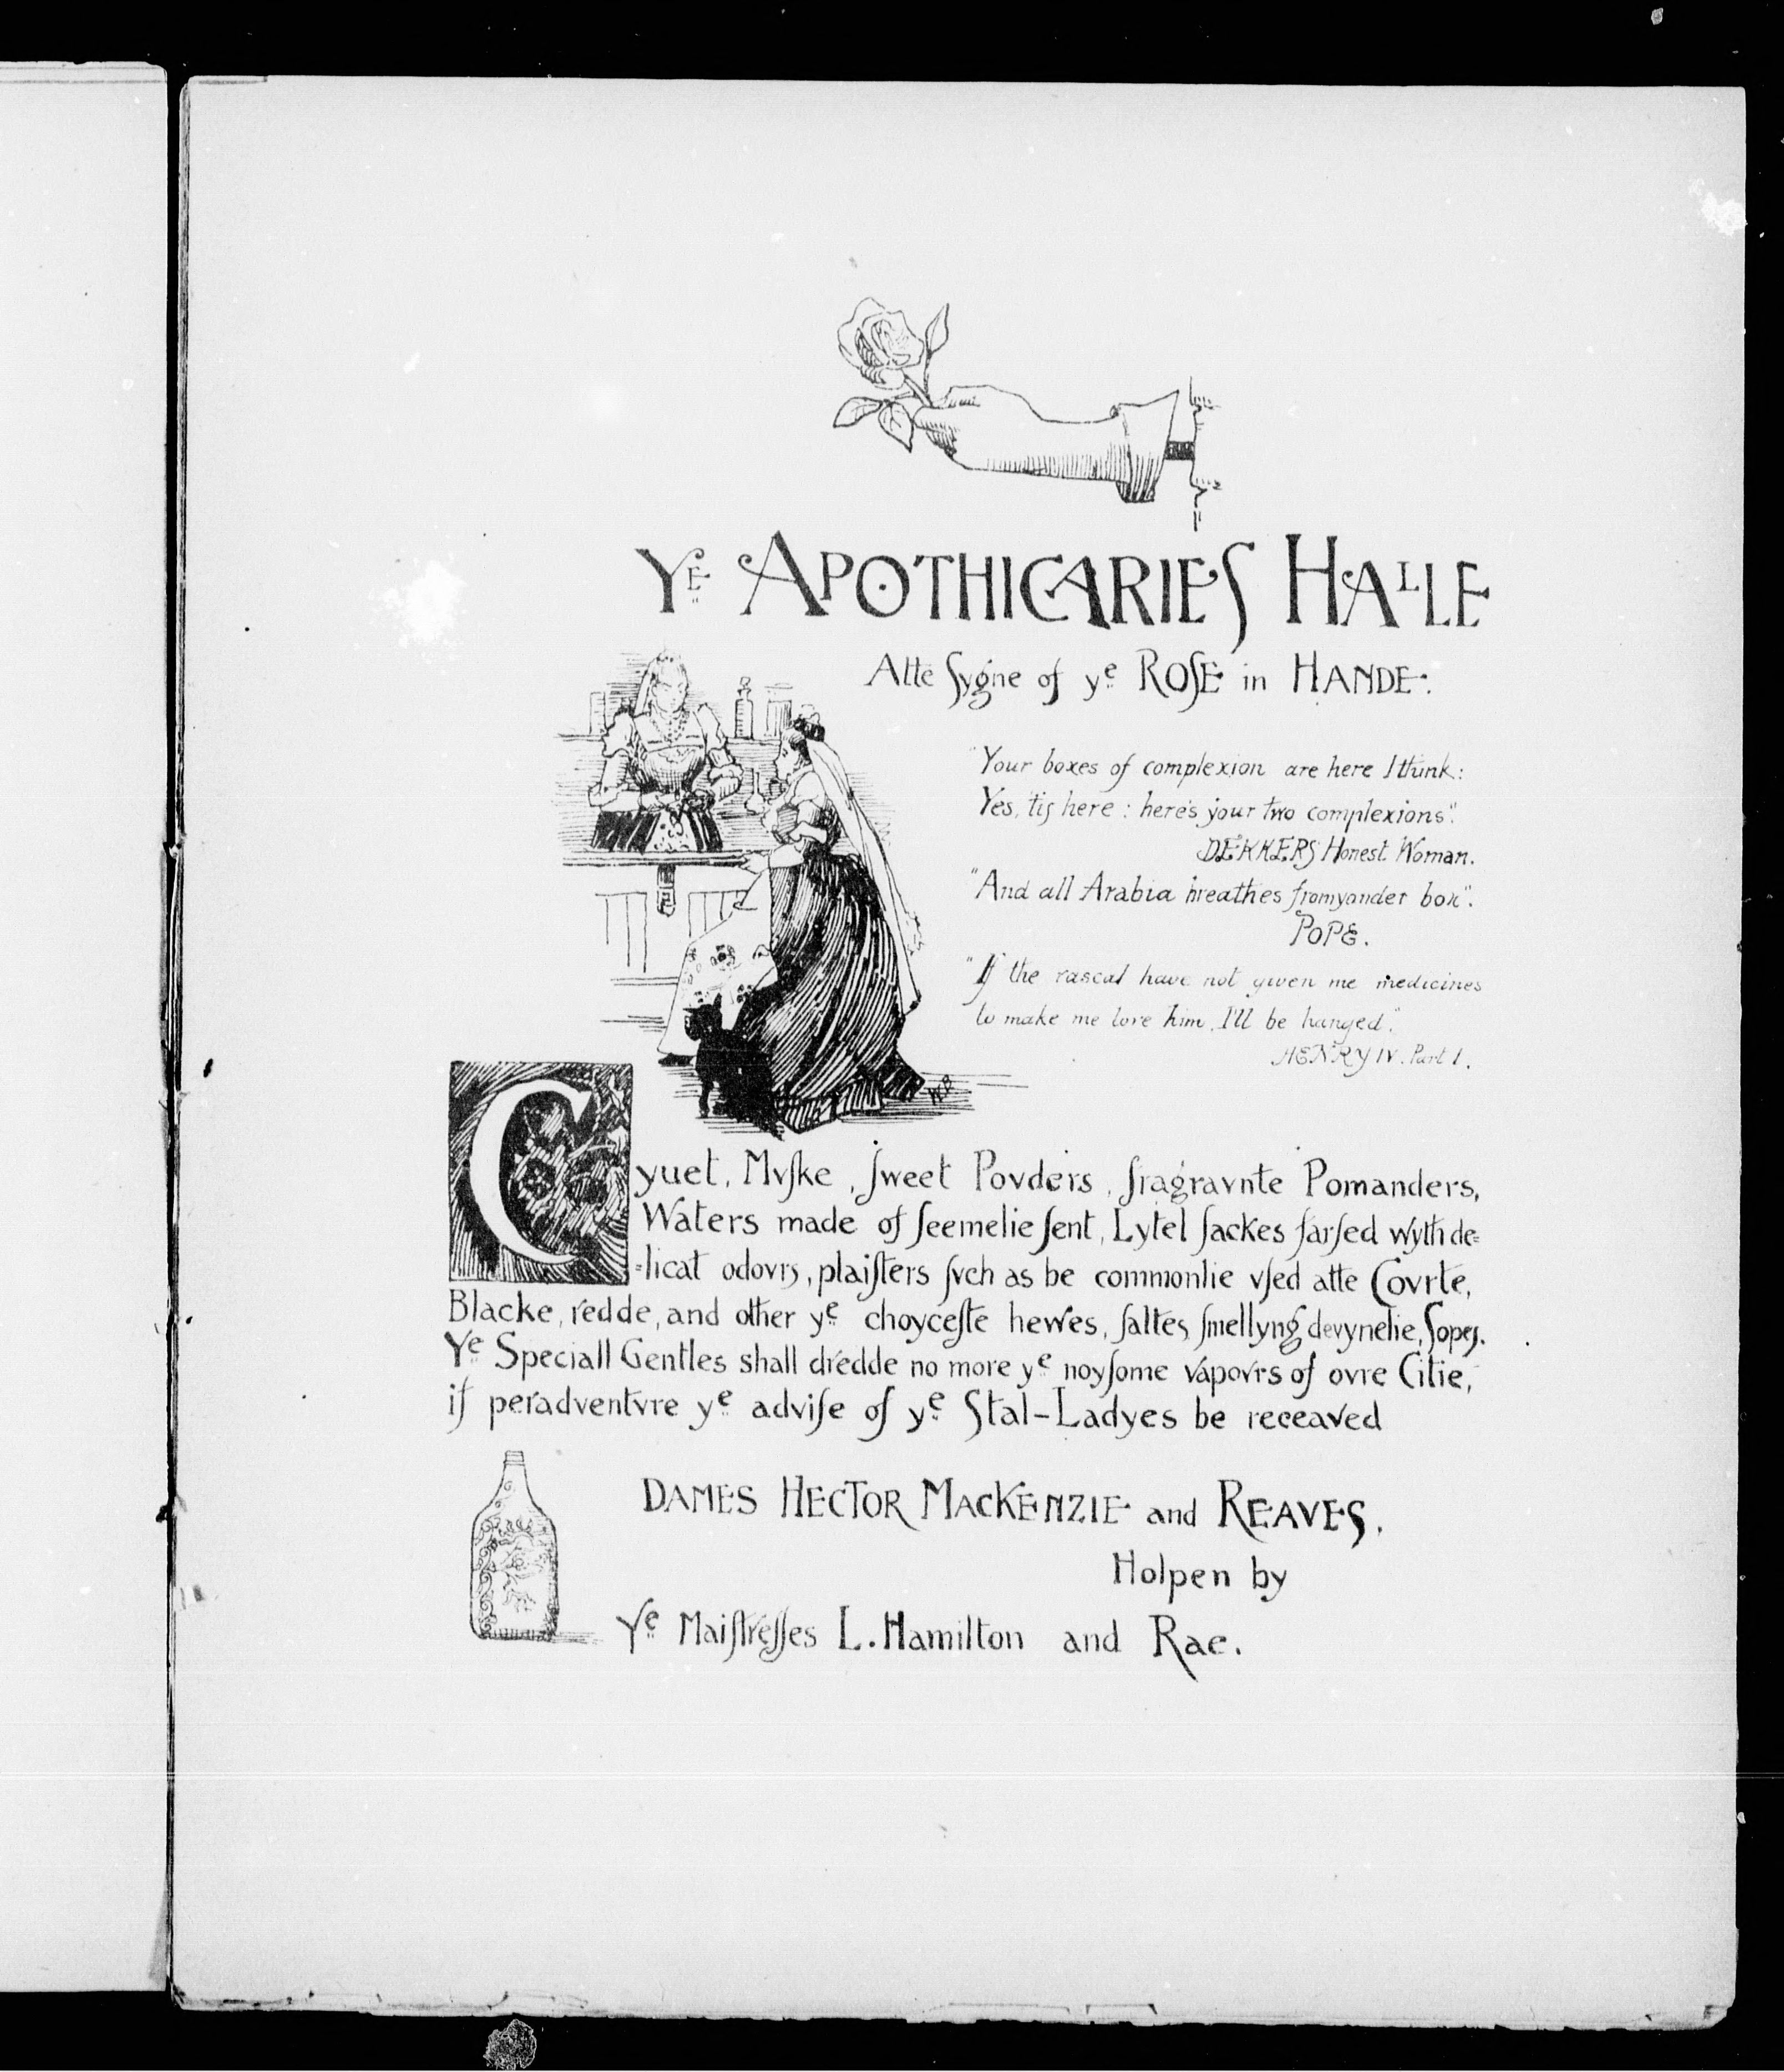 Yᴱ APOTHICARIES HALLE
Atte ſygne of yᵉ ROſE in HANDE.
"Your boxes of complexion are here I think:
Yes, 'tis here : here's your two complexions".
DEKKERS Honest Woman.
"And all Arabia breathes from yonder box".
POPE.
"If the rascal have not given me medicines
to make me love him, I'll be hanged".
HENRY IV. Part I.
WB
Cyuet, Mvſke, ſweet Povders, fragravnte Pomanders,
Waters made of ſeemelie ſent, Lytel ſackes farſed wyth de=
=licat odovrs, plaiſters ſvch as be commonlie vſed atte Covrte,
Blacke, redde, and other yᵉ choyceſte hewes, ſaltes ſmellyng devynelie, Sopes.
Yᵉ Speciall Gentles shall dredde no more yᵉ noyſome vapovrs of ovre Citie,
if peradventvre yᵉ adviſe of yᵉ Stal-Ladyes be receaved
DAMES HECTOR MACKENZIE and REAVES.
Holpen by
Yᵉ Maiſtreſſes L. Hamilton and Rae.